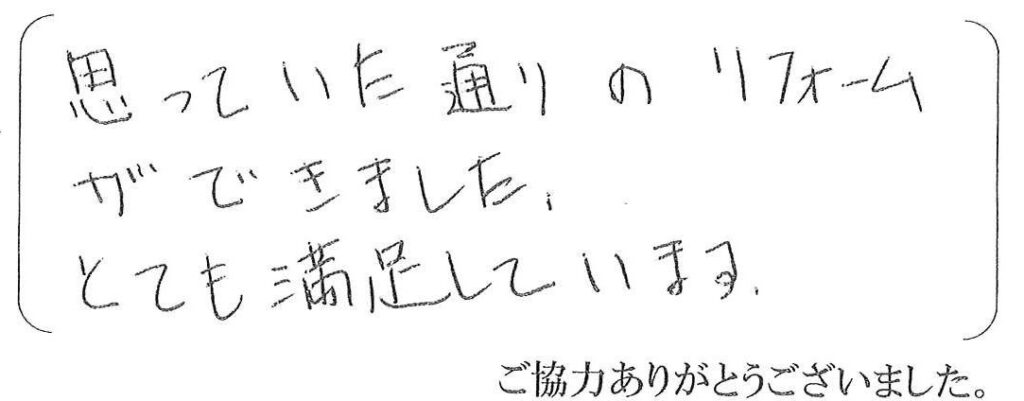 思っていた通りのリフォーム
ができました.
とても満足しています.
ご協力ありがとうございました。